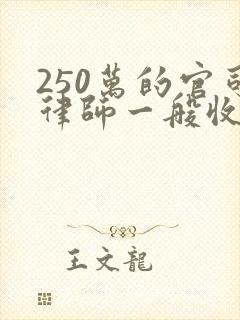 250萬的官司
律師一般收
王文龍